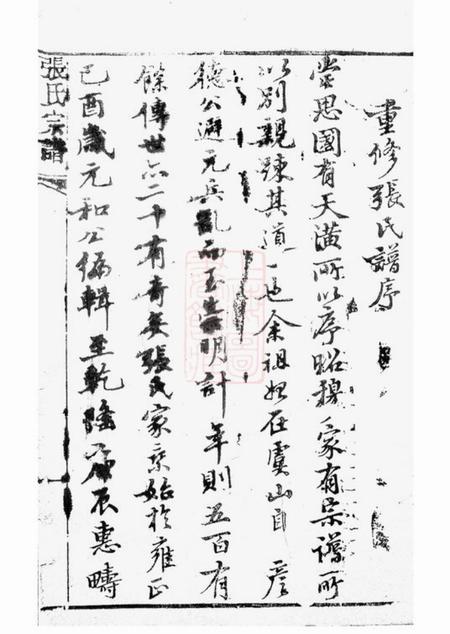 重修張氏譜序
嘗思國有天潢所以序昭穆家有宗譜所
以別親疎其道一也余祖始在虞山自彥
德公避元兵亂而至崇明計年則五百有
餘傳世亦二十有奇矣張氏家乘始於雍正
己酉歲元和公編輯至乾隆庚辰惠疇
張氏宗譜